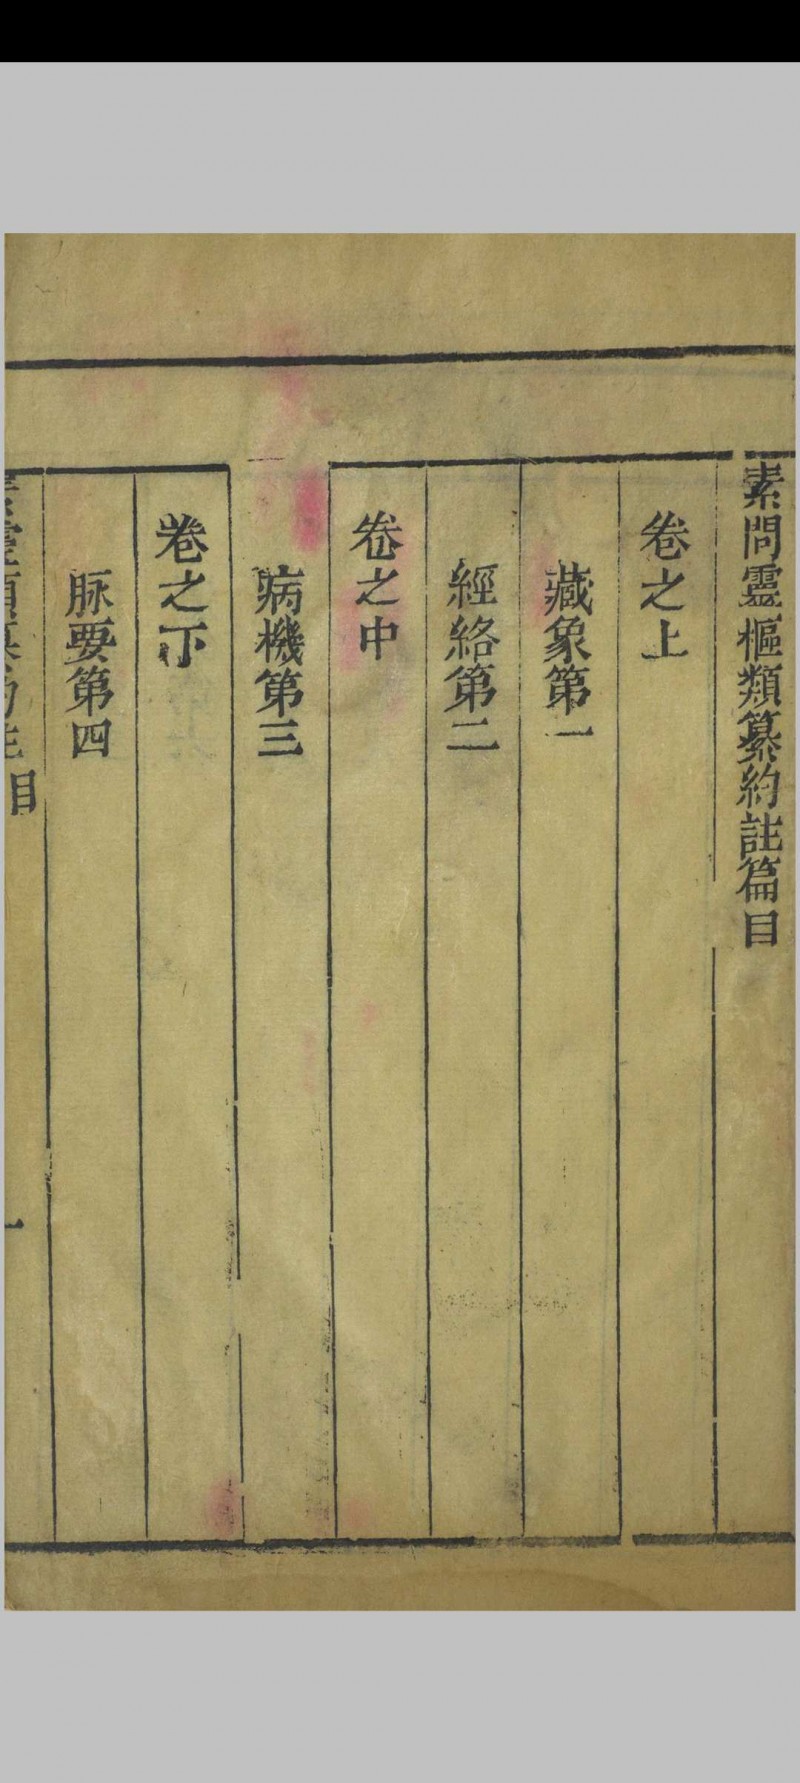 素問靈樞類纂約註篇目
卷之上
藏象第一
經絡第二
卷之中
病機第三
卷之下
脉要第四
素靈類纂約註 目 一